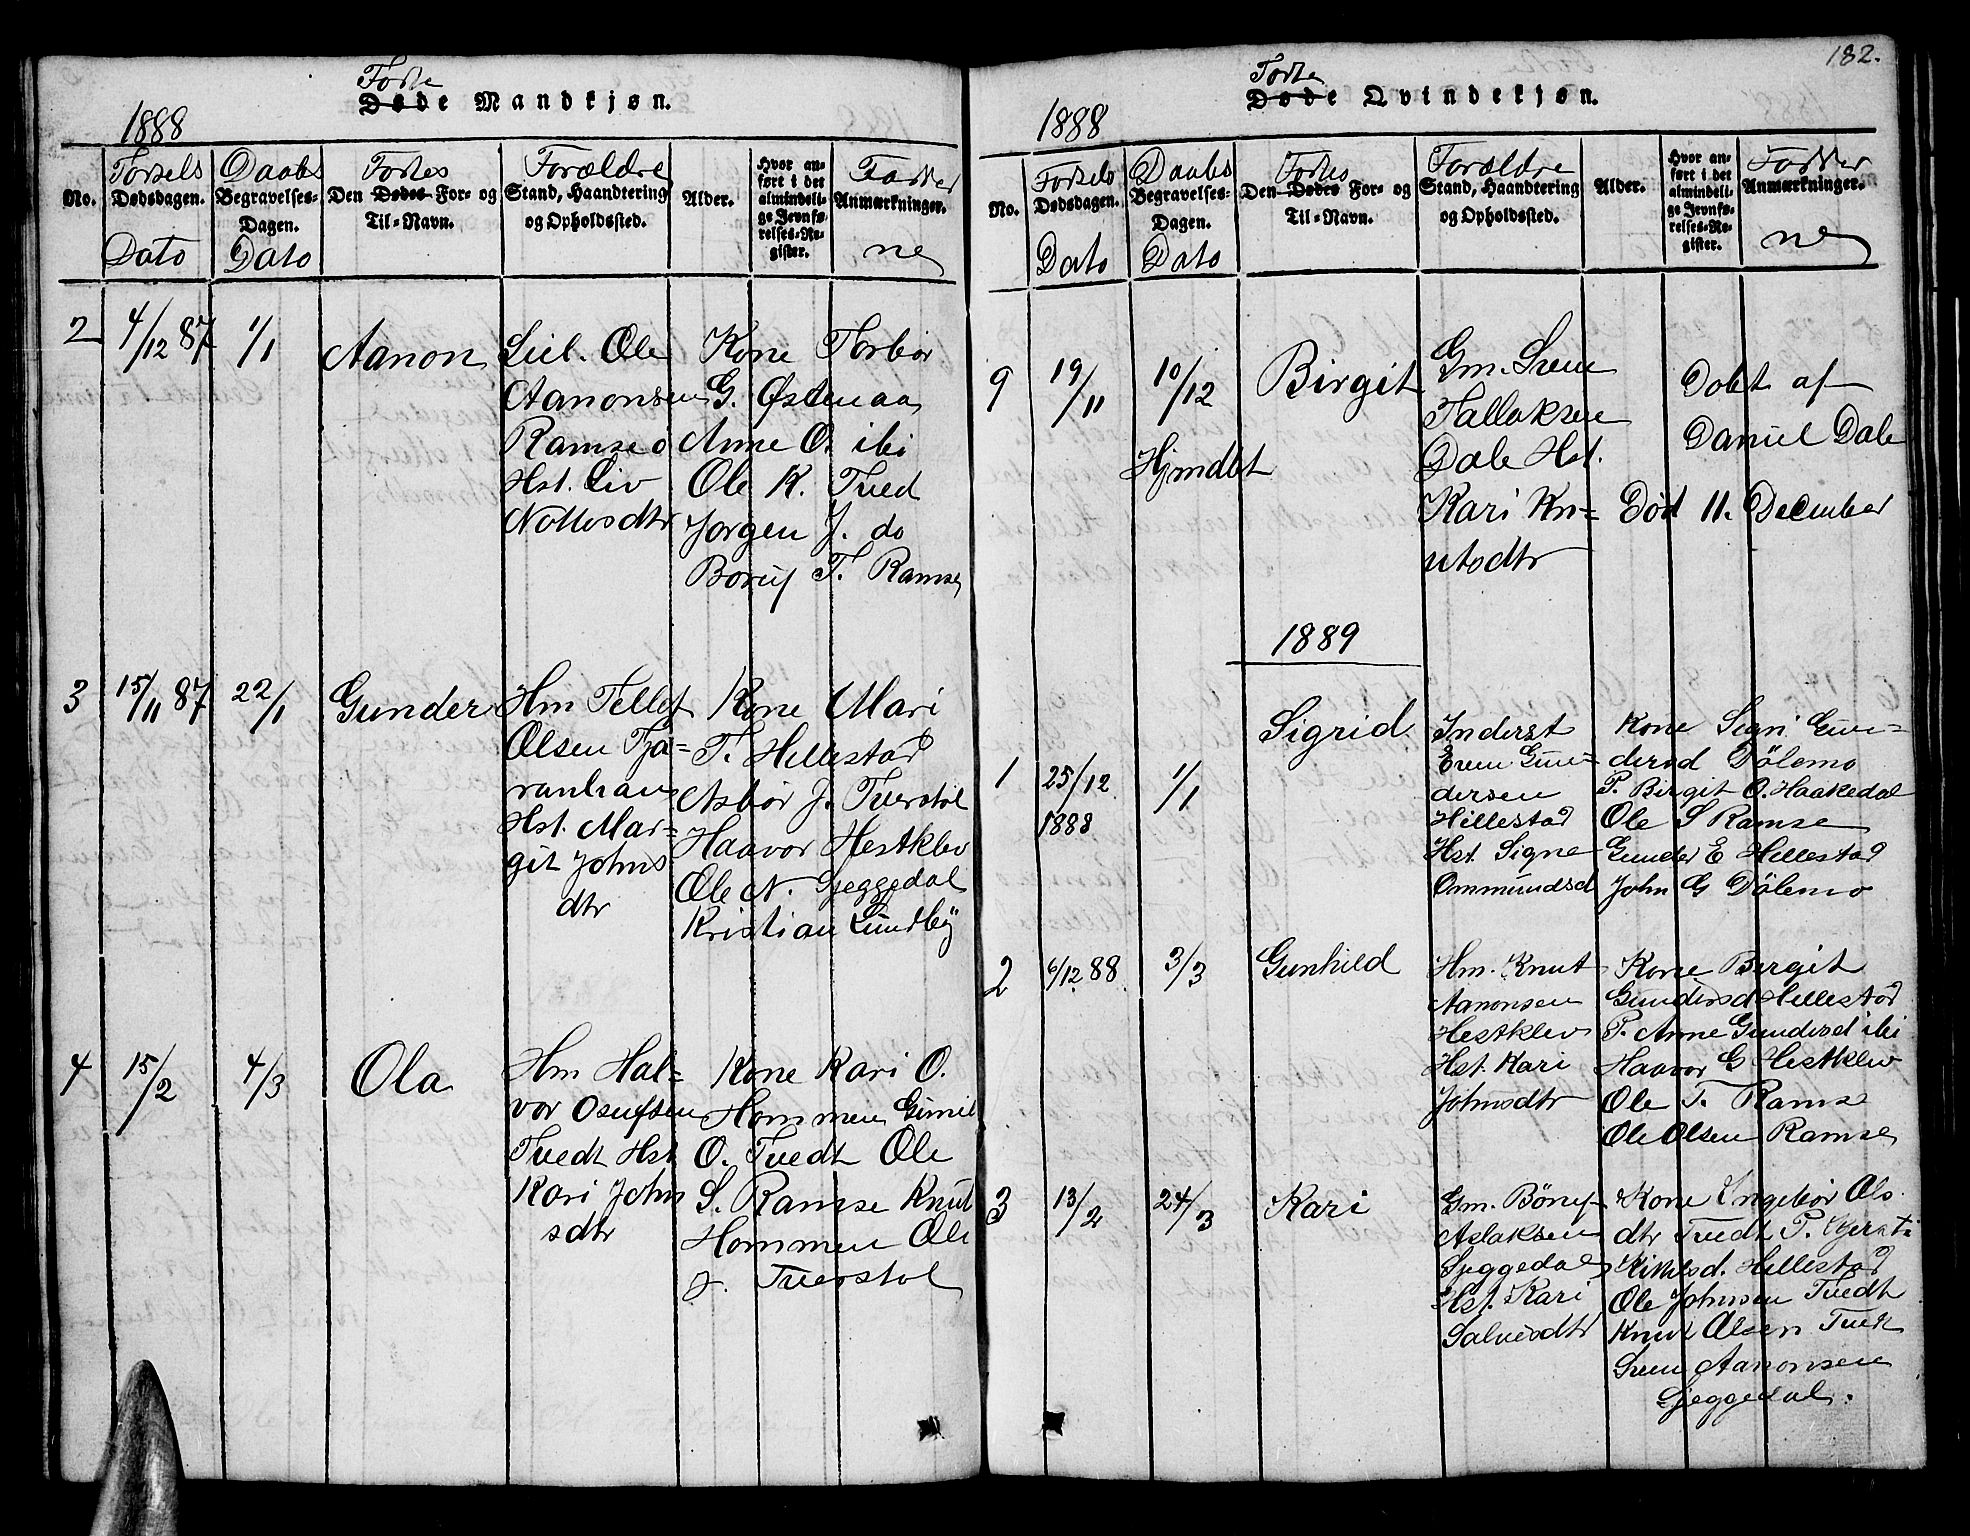 Fødte
Døde Mandkjøn.
1888
No.
Fødsels
Dødsdagen.
Dato
Daabs
Begravelses-
Dagen.
Dato
Fødtes
Den Dødes For- og
Til-Navn.
Forældre
Stand, Haandtering
og Opholdssted.
Alder.
Hvor an-
ført i det
almindeli-
ge Jevnfø-
relses-Re-
gister.
Fadder
Anmærkninger.
ne
2
4/12 87
1/1
Aanon
Leil. Ole
Aanonsen
Ramse
Hst. Liv
dtr
Kone Torbor
G. Østenaa
Anne O. ibi
Ole K. Tved
Jorgen J. do
T. Ramse
3
15/11 87
22/1
Gunder
Hm Tellef
Olsen Tja-
ranhaug
Hst. Mar-
git Johns
dtr
Kone Mari
T. Hillestad
Asbor J. Tverstøl
Haavor Hestklev
Ole N. Gjeggedal
Kristian Lundby
4
15/2
4/3
Ola
Hm Hal-
vor Osufsen
Tvedt Hst
Kari John
sdtr
Kone Kari O.
Hommen
O. Tvedt Ole
S. Ramse Knut
Hommen Ole
J. Tverstøl
182.
Fødte
Døde Qvindekjøn.
1888
No.
Fødsels
Dødsdagen.
Dato
Daabs
Begravelses-
Dagen.
Dato
Fødtes
Den Dødes For- og
Til-Navn.
Forældre
Stand, Haandtering
og Opholdssted.
Alder.
Hvor an-
ført i det
almindeli-
ge Jevnfø-
relses-Re-
gister.
Fadder
Anmærkninger.
ne
9
19/11
10/12
Hjmdbt
Birgit
Gm. Sven
Tallaksen
Dale Hst.
Kari Kn-
utsdtr
Døbt af
Daniel Dale
Død 11. December
1889
1
25/12
1888
1/1
Sigrid
Inderst
Even Gun-
dersen
Hillestad
Hst. Signe
Ommundsd
Kone Sigri Gun-
dersd Dölemo
P. Birgit O. Haakedal
Ole S Ramse
Gunder E Hillestad
John G Dölemo
2
6/12 88
3/3
Gunhild
Hm. Knut
Aanonsen
Hestklev
Hst. Kari
Johnsdtr
Kone Birgit
Gundersd Hillestad
P. Anne Gundersd ibi
Haavor G Hestklev
Ole T. Ramse
Ole Olsen Ramse
3
13/2
24/3
Kari
Gm. Bönuf
Aslaksen
Gjeggedal
Hst. Kari
Salvesdtr
Kone Ingebor Ols
dtr Tvedt P.
Hillestad
Ole Johnsen Tvedt
Knut Olsen Tvedt
Sven Aanonsen
Gjeggedal.